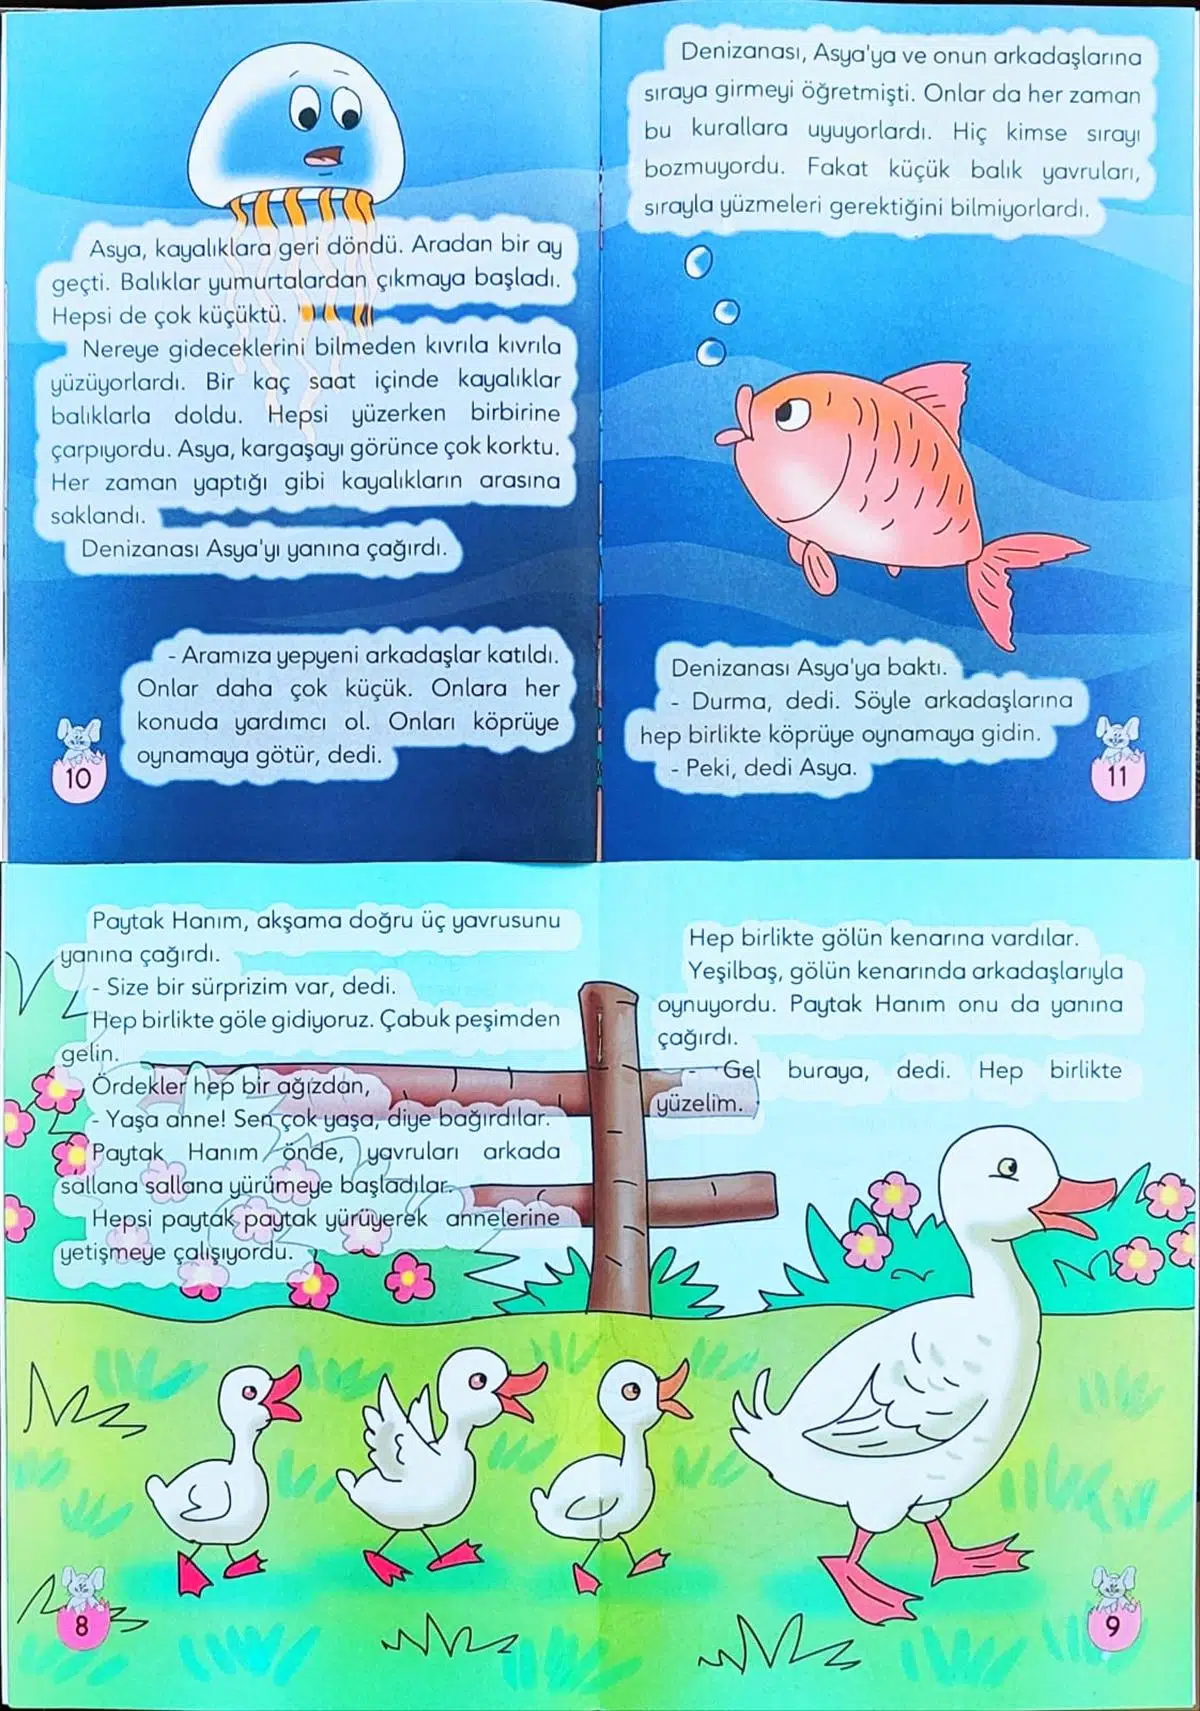 Asya, kayalıklara geri döndü. Aradan bir ay
geçti. Balıklar yumurtalardan çıkmaya başladı.
Hepsi de çok küçüktü.
Nereye gideceklerini bilmeden kıvrıla kıvrıla
yüzüyorlardı. Bir kaç saat içinde kayalıklar
balıklarla doldu. Hepsi yüzerken birbirine
çarpıyordu. Asya, kargaşayı görünce çok korktu.
Her zaman yaptığı gibi kayalıkların arasına
saklandı.
Denizanası Asya'yı yanına çağırdı.
- Aramıza yepyeni arkadaşlar katıldı.
Onlar daha çok küçük. Onlara her
konuda yardımcı ol. Onları köprüye
oynamaya götür, dedi.
10
Denizanası, Asya'ya ve onun arkadaşlarına
sıraya girmeyi öğretmişti. Onlar da her zaman
bu kurallara uyuyorlardı. Hiç kimse sırayı
bozmuyordu. Fakat küçük balık yavruları,
sırayla yüzmeleri gerektiğini bilmiyorlardı.
Denizanası Asya'ya baktı.
- Durma, dedi. Söyle arkadaşlarına
hep birlikte köprüye oynamaya gidin.
- Peki, dedi Asya.
11
Paytak Hanım, akşama doğru üç yavrusunu
yanına çağırdı.
- Size bir sürprizim var, dedi.
Hep birlikte göle gidiyoruz. Çabuk peşimden
gelin.
Ördekler hep bir ağızdan,
- Yaşa anne! Sen çok yaşa, diye bağırdılar.
Paytak Hanım önde, yavruları arkada
sallana sallana yürümeye başladılar.
Hepsi paytak paytak yürüyerek annelerine
yetişmeye çalışıyordu.
8
Hep birlikte gölün kenarına vardılar.
Yeşilbaş, gölün kenarında arkadaşlarıyla
oynuyordu. Paytak Hanım onu da yanına
çağırdı.
- Gel buraya, dedi. Hep birlikte
yüzelim.
9